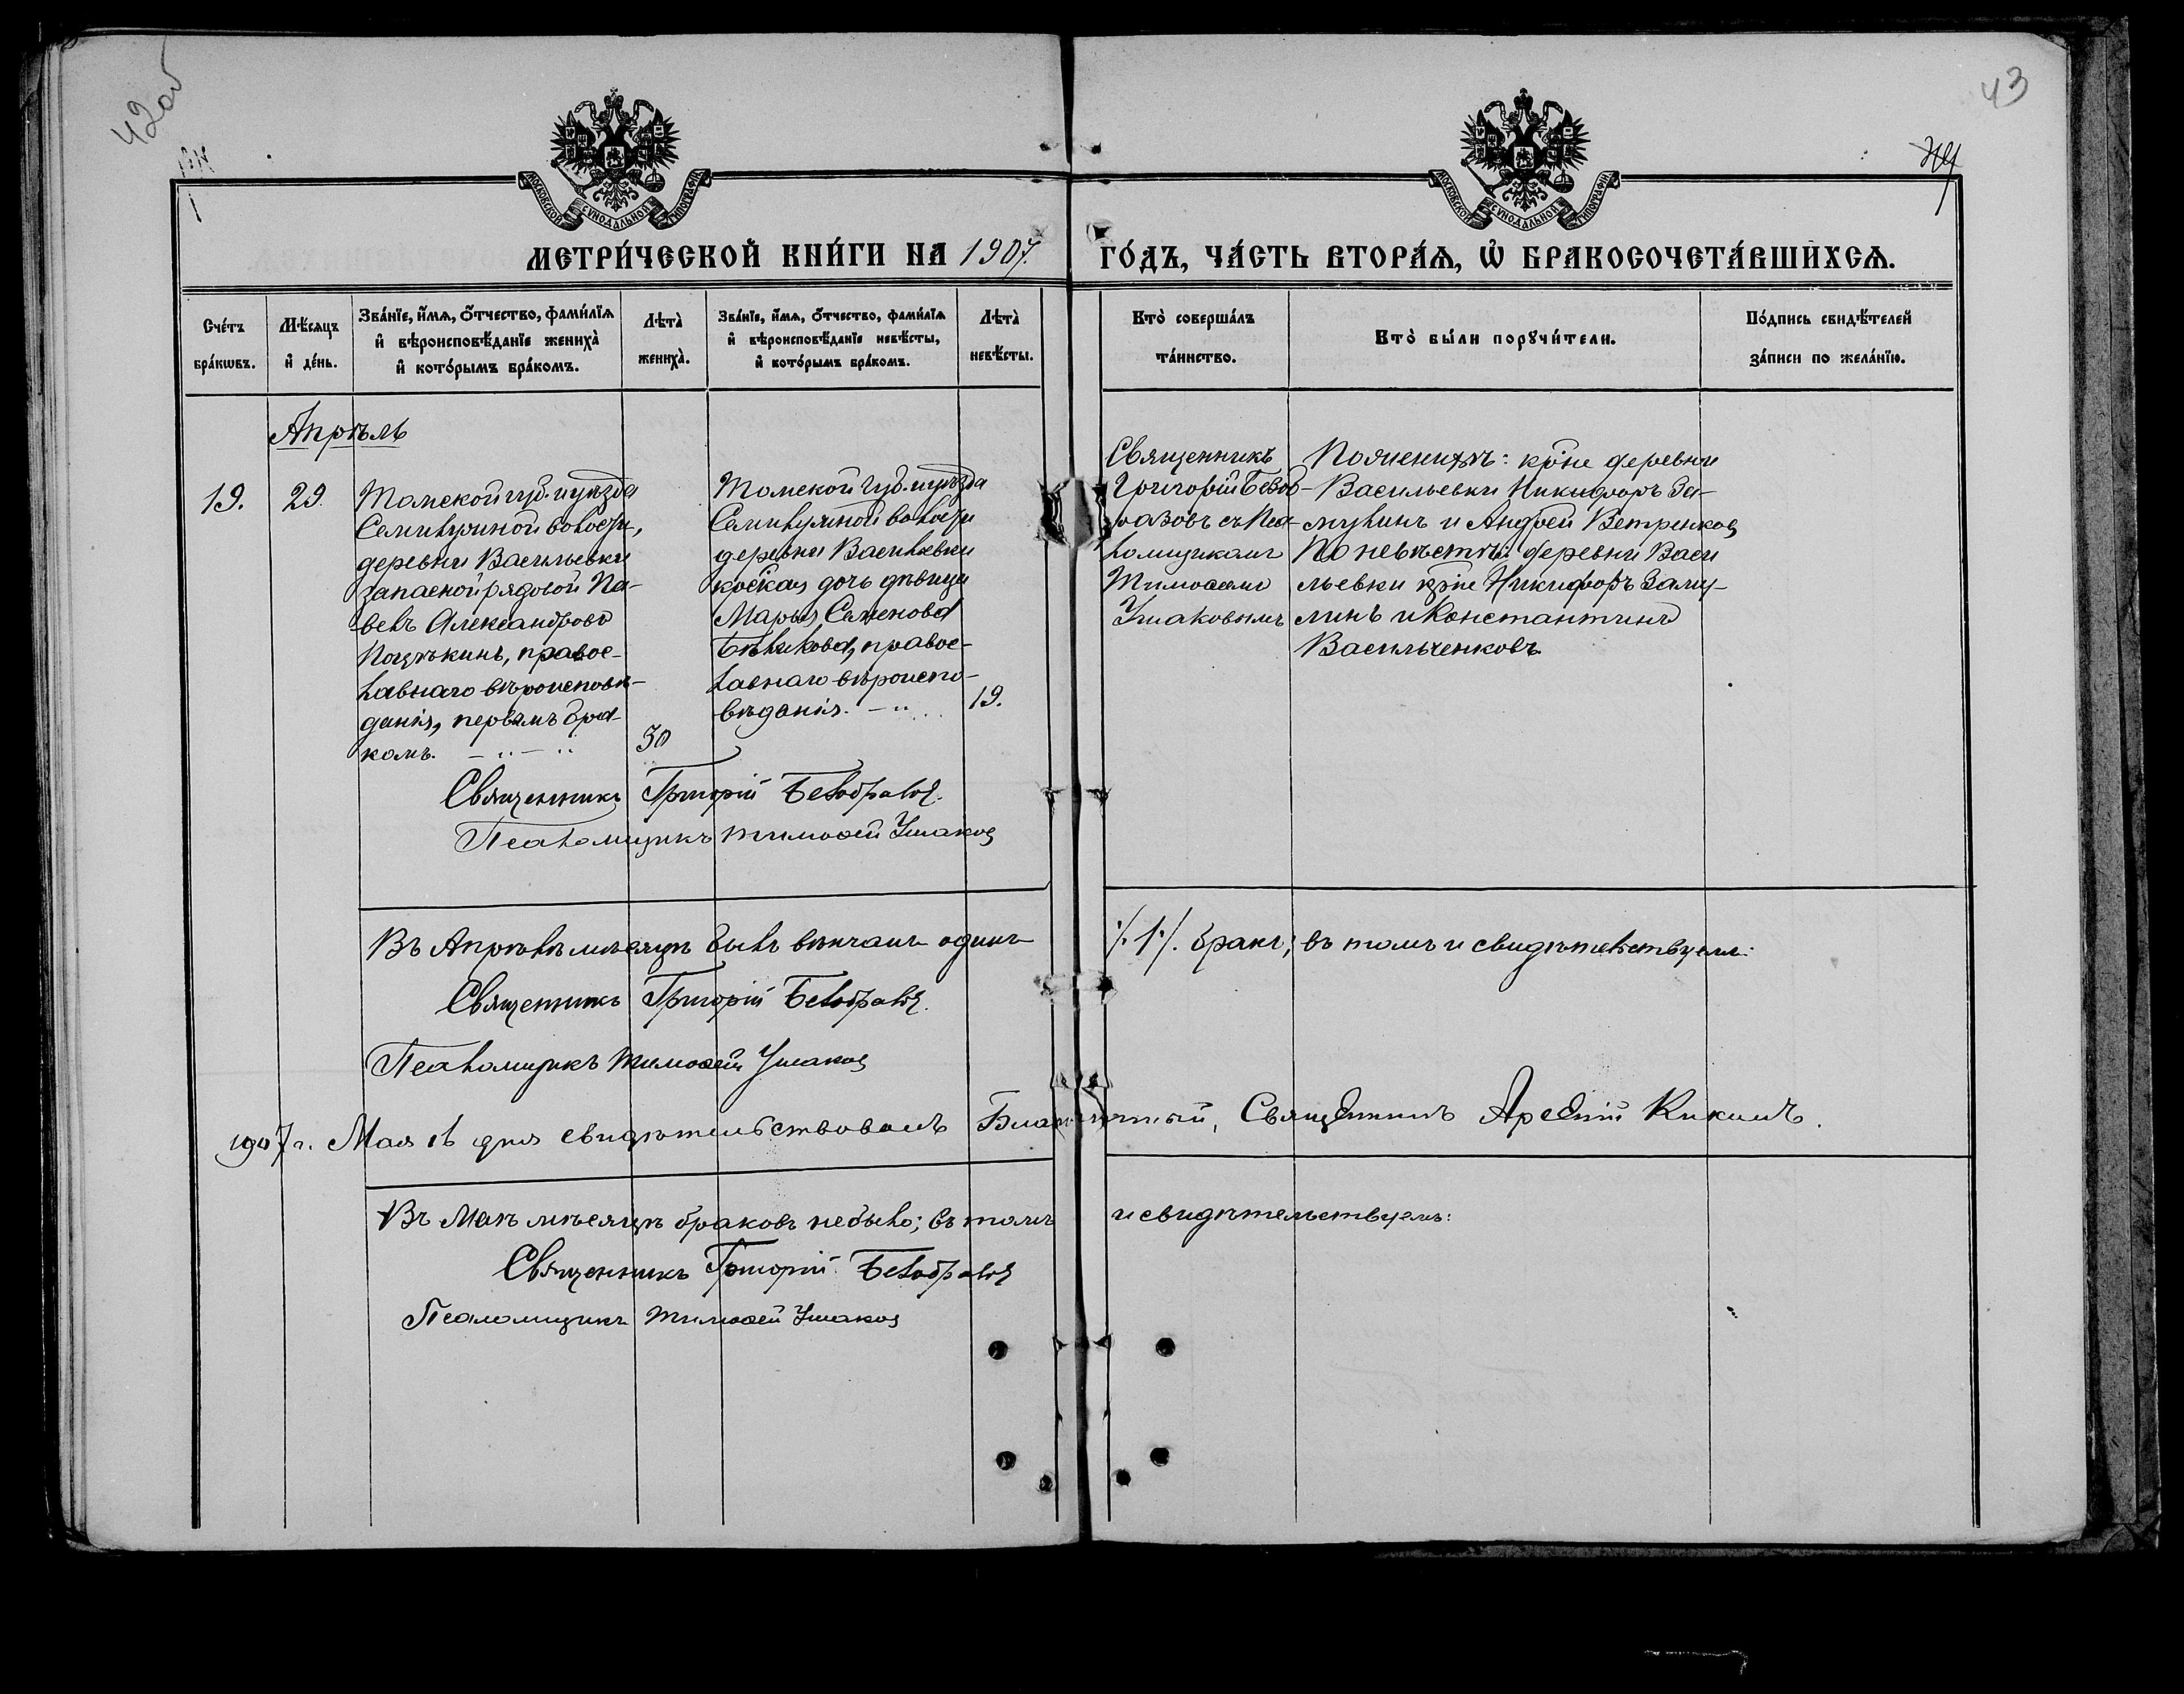 42об
43
МОСКОВСКОЙ СУНОДАЛЬНОЙ ТИПОГРАФІИ
МОСКОВСКОЙ СУНОДАЛЬНОЙ ТИПОГРАФІИ
МЕТРИ́ЧЕСКОЙ КНИ́ГИ НА 1907 ГО́ДЪ, ЧА́СТЬ ВТОРА́Ѧ, Ѡ҆ БРАКОСОЧЕТА́ВШИХСѦ.
Сче́тъ бра́кѡвъ.
Мѣ́сяцъ и҆ де́нь.
Зва́нїе, и҆́мѧ, о҆́тчество, фами́лїѧ
и҆ вѣроисповѣ́данїе жениха̀
и҆ кото́рымъ бра́комъ.
Лѣта̀ жениха̀.
Зва́нїе, и҆́мѧ, о҆́тчество, фами́лїѧ
и҆ вѣроисповѣ́данїе невѣ́сты,
и҆ кото́рымъ бра́комъ.
Лѣта̀ невѣ́сты.
Кто̀ соверша́лъ та́инство.
Кто̀ бы́ли порꙋчи́тели.
По́дпись свидѣ́телей
за́писи по жела́нїю.
Апрѣль
19.
29.
Томской губ. и уѣзда
Семилужной волости,
деревни Васильевки
запасной рядовой Па-
велъ Александровъ
православнаго вѣроисповѣ-
данія, первымъ бра-
комъ. - " - "
30
Томской губ. и уѣзда
Семилужной волости
деревни Васильевки
дочь дѣвица
Марья Семенова
Бѣликова, правос-
лавнаго вѣроиспо-
вѣданія. - "
19.
Священникъ
Григорій Белоб-
разовъ съ Пса-
ломщикомъ
Тимоѳеемъ
Ушаковымъ
По женихѣ: крне деревни
Васильевки Никифоръ За-
мулинъ и Андрей Ветренковъ
По невѣстѣ: деревни Васи
льевки крне Никифоръ Заму-
линъ и Константинъ
Васильченковъ.
Священникъ Григорій Белобразовъ.
Псаломщикъ Тимоѳей Ушаковъ
Въ Апрѣлѣ мѣсяцѣ былъ вѣнчанъ одинъ /.1./. бракъ; въ томъ и свидѣтельствуемъ:
Священникъ Григорій Белобразовъ.
Псаломщикъ Тимоѳей Ушаковъ
1907 г. Мая дня свидѣтельствовалъ Благочинный, Священникъ Арсеній Кикинъ.
Въ Маѣ мѣсяцѣ браковъ небыло; въ томъ и свидѣтельствуемъ:
Священникъ Григорій Белобразовъ
Псаломщикъ Тимоѳей Ушаковъ